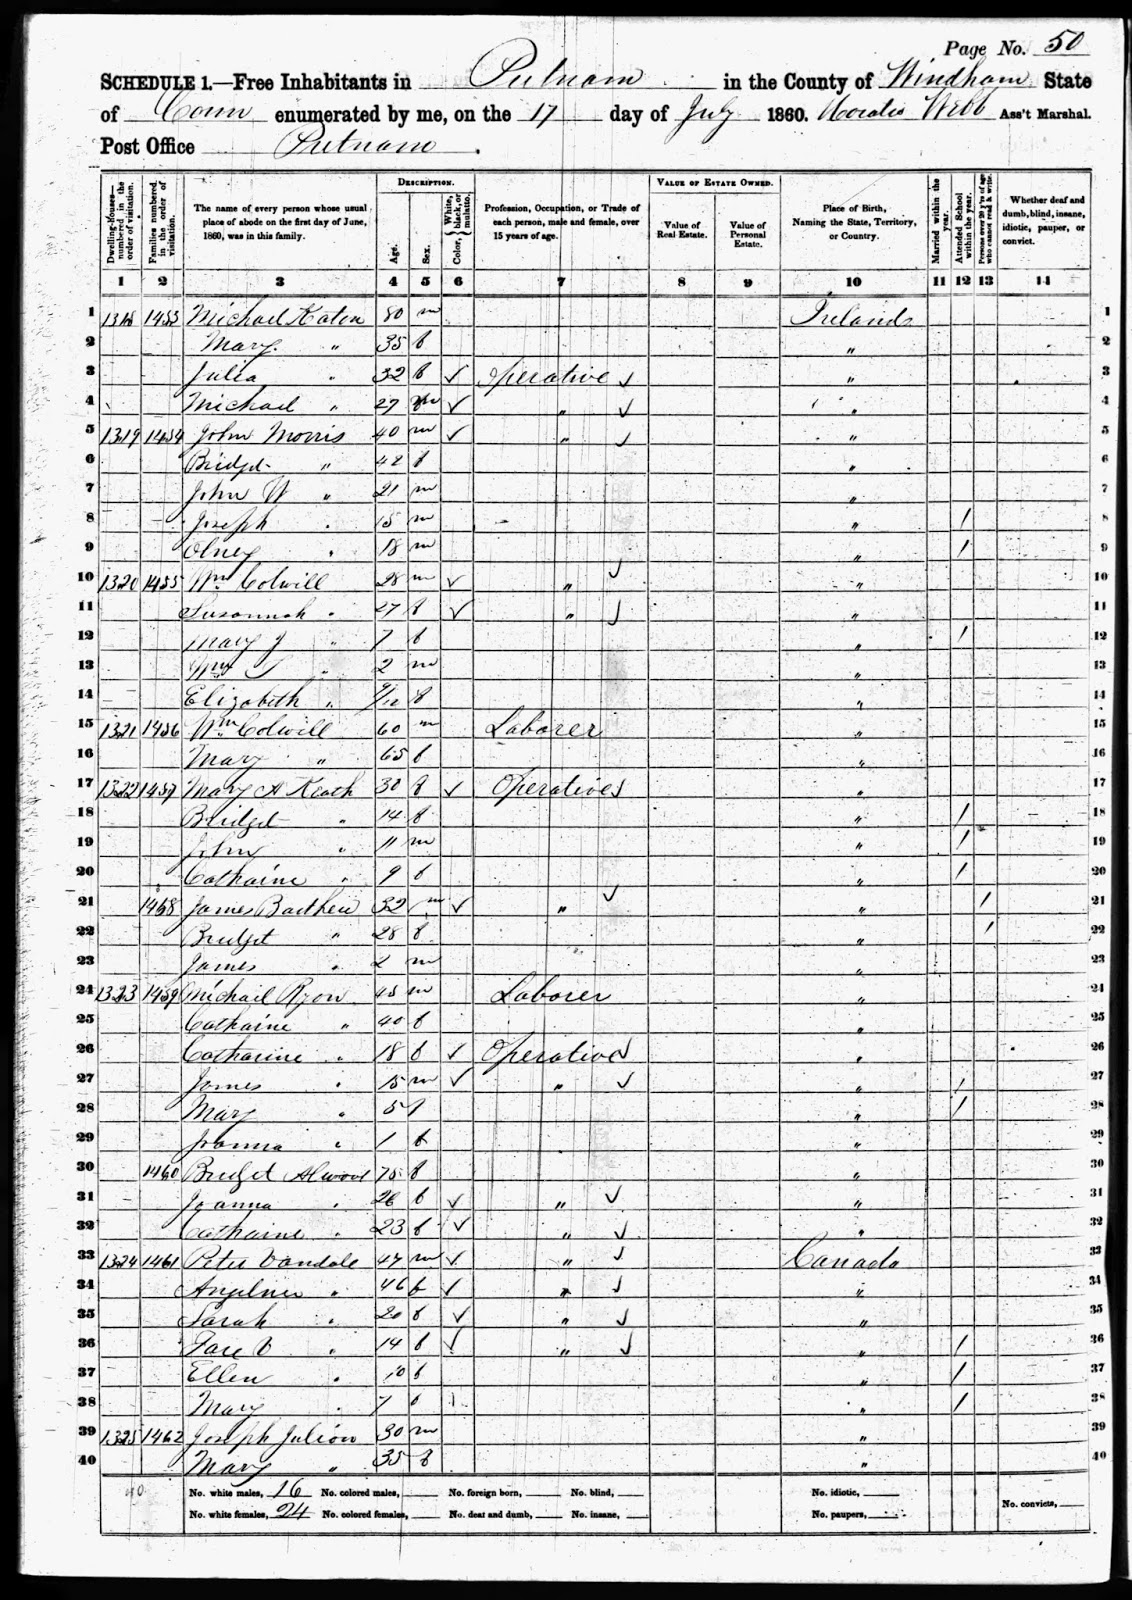 Page No. 50
SCHEDULE 1.—Free Inhabitants in Putnam in the County of Windham State
of Conn enumerated by me, on the 17 day of July 1860. Horatio Webb Ass't Marshal.
Post Office Putnam.
DESCRIPTION. VALUE OF ESTATE OWNED.
Dwelling-houses—numbered in the order of visitation. Families numbered in the order of visitation. The name of every person whose usual place of abode on the first day of June, 1860, was in this family. Age. Sex. Color, { White, black, or mulatto. Profession, Occupation, or Trade of each person, male and female, over 15 years of age. Value of Real Estate. Value of Personal Estate. Place of Birth, Naming the State, Territory, or Country. Married within the year. Attended School within the year. Persons over 20 y'rs of age who cannot read & write. Whether deaf and dumb, blind, insane, idiotic, pauper, or convict.
1 2 3 4 5 6 7 8 9 10 11 12 13 14
1 1318 1453 Michael Katon 80 m Ireland 1
2 Mary " 35 f " 2
3 Julia " 32 f ✓ Operative ✓ " 3
4 Michael " 27 m ✓ " ✓ " 4
5 1319 1454 John Morris 40 m ✓ " ✓ " 5
6 Bridget " 42 f " 6
7 John W " 21 m " 7
8 Joseph " 15 m " / 8
9 Olney " 18 m " / 9
10 1320 1455 Wm Colwill 28 m ✓ " ✓ " 10
11 Susannah " 27 f ✓ " ✓ " 11
12 Mary J " 7 f " / 12
13 Wm " 2 m " 13
14 Elizabeth " 9/12 f " 14
15 1321 1456 Wm Colwill 60 m Laborer " 15
16 Mary " 65 f " 16
17 1322 1457 Mary A Keach 30 f ✓ Operative ✓ " 17
18 Bridget " 14 f " / 18
19 John " 11 m " / 19
20 Cathaine " 9 f " / 20
21 1458 James 32 m ✓ " ✓ " / 21
22 Bridget " 28 f " / 22
23 James " 2 m " 23
24 1323 1459 Michael Ryon 45 m Laborer " 24
25 Cathaine " 40 f " 25
26 Catharine " 18 f ✓ Operative ✓ " 26
27 James " 15 m ✓ " ✓ " / 27
28 Mary " 5 f " / 28
29 Joanna " 1 f " 29
30 1460 Bridget 75 f " 30
31 Joanna " 26 f ✓ " ✓ " 31
32 Cathaine " 23 f ✓ " ✓ " 32
33 1324 1461 Peter Vandale 47 m ✓ " ✓ Canada 33
34 Angeline " 46 f ✓ " ✓ " 34
35 Sarah " 20 f ✓ " ✓ " 35
36 " 14 f ✓ " ✓ " / 36
37 Ellen " 10 f " / 37
38 Mary " 7 f " / 38
39 1325 1462 Joseph Julion 30 m " 39
40 Mary " 35 f " 40
40 No. white males, 16 No. colored males, No. foreign born, No. blind, No. idiotic,
No. white females, 24 No. colored females, No. deaf and dumb, No. insane, No. paupers, No. convicts,